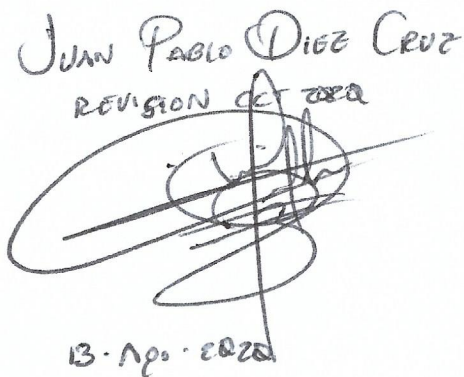 JUAN PABLO DIEZ CRUZ
REVISION CCT 2020
13 · Ago · 2020